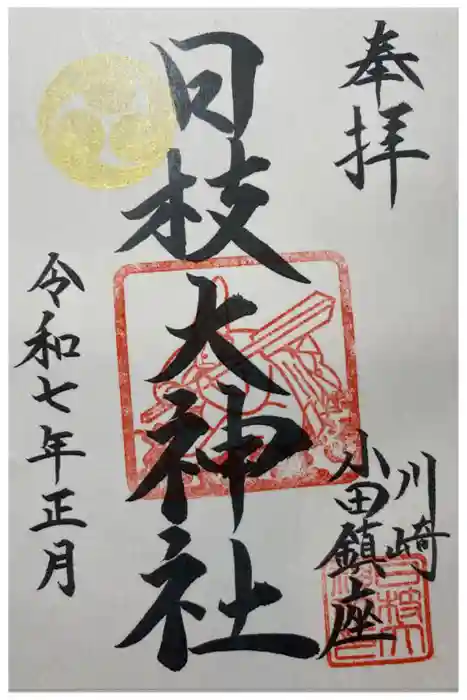 奉拝
川崎
小田鎮座
日枝大神社
令和七年正月